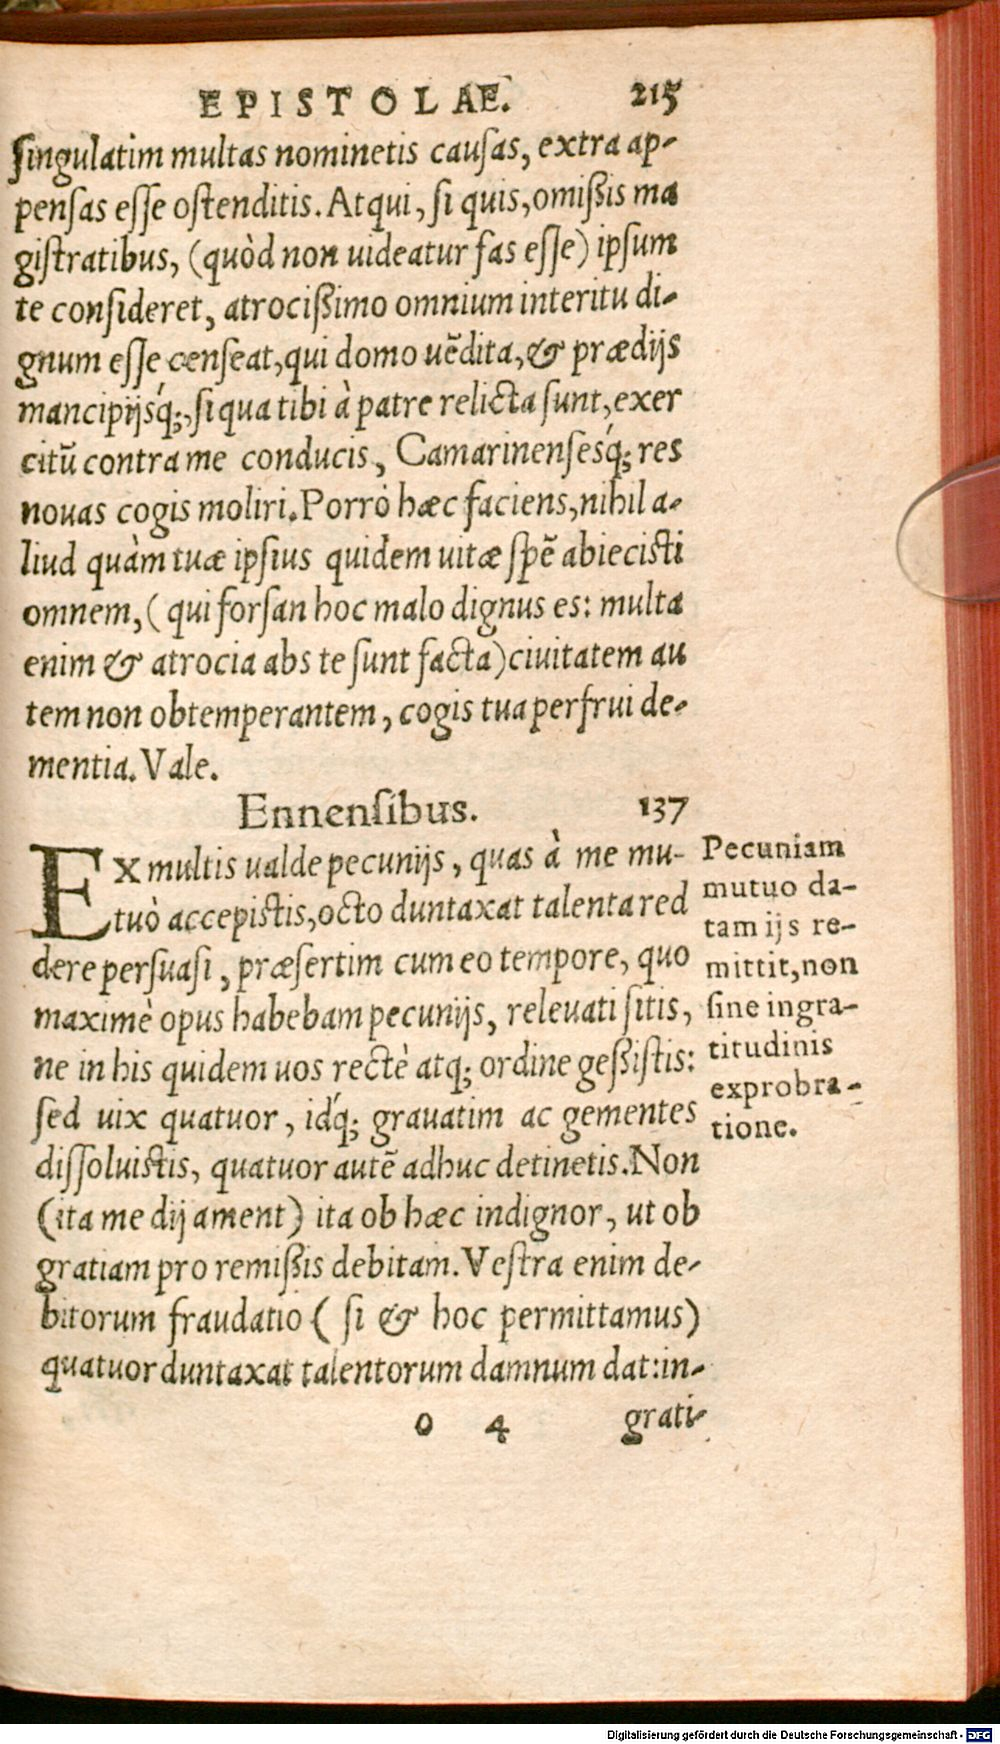 EPISTOLAE. 215
singulatim multas nominetis causas, extra ap-
pensas esse ostenditis. Atqui, si quis, omißis ma
gistratibus, (quòd non uideatur fas esse) ipsum
te consideret, atrocißimo omnium interitu di-
gnum esse censeat, qui domo uẽdita, & prædijs
mancipijsq́;, si qua tibi à patre relicta sunt, exer
citũ contra me conducis, Camarinensesq́; res
nouas cogis moliri. Porrò hæc faciens, nihil a-
liud quàm tuæ ipsius quidem uitæ spẽ abiecisti
omnem, (qui forsan hoc malo dignus es: multa
enim & atrocia abs te sunt facta) ciuitatem au
tem non obtemperantem, cogis tua perfrui de-
mentia. Vale.
Ennensibus. 137
EX multis ualde pecunijs, quas à me mu-
tuò accepistis, octo duntaxat talenta red
dere persuasi, præsertim cum eo tempore, quo
maximè opus habebam pecunijs, releuati sitis,
ne in his quidem uos rectè atq; ordine geßistis:
sed uix quatuor, idq́; grauatim ac gementes
dissoluistis, quatuor autẽ adhuc detinetis. Non
(ita me dij ament) ita ob hæc indignor, ut ob
gratiam pro remißis debitam. Vestra enim de-
bitorum fraudatio ( si & hoc permittamus)
quatuor duntaxat talentorum damnum dat: in-
o 4 grati-
Pecuniam
mutuo da-
tam ijs re-
mittit, non
sine ingra-
titudinis
exprobra-
tione.
Digitalisierung gefördert durch die Deutsche Forschungsgemeinschaft - DFG